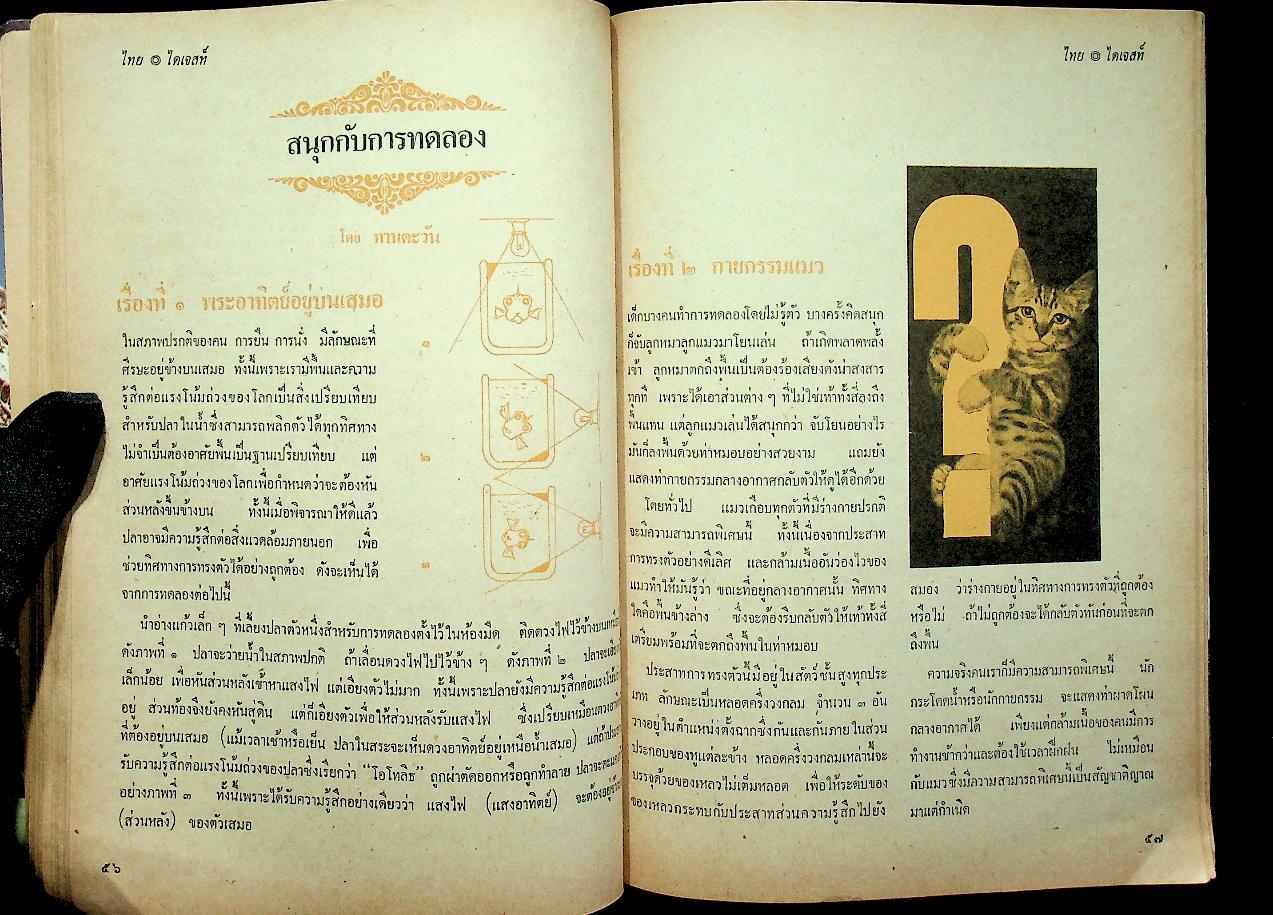 ไทย ๏ ไดเจสท์
สนุกกับการทดลอง
โดย ทานตะวัน
เรื่องที่ ๑ พระอาทิตย์อยู่บนเสมอ
ในสภาพปรกติของคน การยืน การนั่ง มีลักษณะที่
ศีรษะอยู่ข้างบนเสมอ ทั้งนี้เพราะเรามีพื้นและความ
รู้สึกต่อแรงโน้มถ่วงของโลกเป็นสิ่งเปรียบเทียบ
สำหรับปลาในน้ำซึ่งสามารถพลิกตัวได้ทุกทิศทาง
ไม่จำเป็นต้องอาศัยพื้นเป็นฐานเปรียบเทียบ แต่
อาศัยแรงโน้มถ่วงของโลกเพื่อกำหนดว่าจะต้องหัน
ส่วนหลังขึ้นข้างบน ทั้งนี้เมื่อพิจารณาให้ดีแล้ว
ปลาอาจมีความรู้สึกต่อสิ่งแวดล้อมภายนอก เพื่อ
ช่วยทิศทางการทรงตัวได้อย่างถูกต้อง ดังจะเห็นได้
จากการทดลองต่อไปนี้
๑
๒
๓
นำอ่างแก้วเล็ก ๆ ที่เลี้ยงปลาตัวหนึ่งสำหรับการทดลองตั้งไว้ในห้องมืด ติดดวงไฟไว้ข้างบน
ดังภาพที่ ๑ ปลาจะว่ายน้ำในสภาพปกติ ถ้าเลื่อนดวงไฟไปไว้ข้าง ๆ ดังภาพที่ ๒ ปลาจะ
เล็กน้อย เพื่อหันส่วนหลังเข้าหาแสงไฟ แต่เอียงตัวไม่มาก ทั้งนี้เพราะปลายังมีความรู้สึกต่อแรงโน้ม
อยู่ ส่วนท้องจึงยังคงหันสู่ดิน แต่ก็เอียงตัวเพื่อให้ส่วนหลังรับแสงไฟ ซึ่งเปรียบเหมือน
ที่ต้องอยู่บนเสมอ (แม้เวลาเช้าหรือเย็น ปลาในสระจะเห็นดวงอาทิตย์อยู่เหนือน้ำเสมอ)
รับความรู้สึกต่อแรงโน้มถ่วงของปลาซึ่งเรียกว่า “โอโทลิธ” ถูกผ่าตัดออกหรือถูกทำลาย ปลาจะ
อย่างภาพที่ ๓ ทั้งนี้เพราะได้รับความรู้สึกอย่างเดียวว่า แสงไฟ (แสงอาทิตย์) จะต้อง
(ส่วนหลัง) ของตัวเสมอ
๕๖
ไทย ๏ ไดเจสท์
เรื่องที่ ๒ กายกรรมแมว
เด็กบางคนทำการทดลองโดยไม่รู้ตัว บางครั้งคิดสนุก
ก็จับลูกหมาลูกแมวมาโยนเล่น ถ้าเกิดพลาดพลั้ง
เข้า ลูกหมาตกถึงพื้นเป็นต้องร้องเสียงดังน่าสงสาร
ทุกที เพราะได้เอาส่วนต่าง ๆ ที่ไม่ใช่เท้าทั้งสี่ลงถึง
พื้นแทน แต่ลูกแมวเล่นได้สนุกกว่า จับโยนอย่างไร
มันก็ลงพื้นด้วยท่าหมอบอย่างสวยงาม แถมยัง
แสดงท่ากายกรรมกลางอากาศกลับตัวให้ดูได้อีกด้วย
โดยทั่วไป แมวเกือบทุกตัวที่มีร่างกายปรกติ
จะมีความสามารถพิเศษนี้ ทั้งนี้เนื่องจากประสาท
การทรงตัวอย่างดีเลิศ และกล้ามเนื้ออันว่องไวของ
แมวทำให้มันรู้ว่า ขณะที่อยู่กลางอากาศนั้น ทิศทาง
ใดคือพื้นข้างล่าง ซึ่งจะต้องรีบกลับตัวให้เท้าทั้งสี่
เตรียมพร้อมที่จะตกถึงพื้นในท่าหมอบ
ประสาทการทรงตัวนี้มีอยู่ในสัตว์ชั้นสูงทุกประ
เภท ลักษณะเป็นหลอดครึ่งวงกลม จำนวน ๓ อัน
วางอยู่ในตำแหน่งตั้งฉากซึ่งกันและกันภายในส่วน
ประกอบของหูแต่ละข้าง หลอดครึ่งวงกลมเหล่านี้จะ
บรรจุด้วยของเหลวไม่เต็มหลอด เพื่อให้ระดับของ
ของเหลวกระทบกับประสาทส่วนความรู้สึกไปยัง
สมอง ว่าร่างกายอยู่ในทิศทางการทรงตัวที่ถูกต้อง
หรือไม่ ถ้าไม่ถูกต้องจะได้กลับตัวทันก่อนที่จะตก
ถึงพื้น
ความจริงคนเราก็มีความสามารถพิเศษนี้ นัก
กระโดดน้ำหรือนักกายกรรม จะแสดงท่าผาดโผน
กลางอากาศได้ เพียงแต่กล้ามเนื้อของคนมีการ
ทำงานช้ากว่าและต้องใช้เวลาฝึกฝน ไม่เหมือน
กับแมวซึ่งมีความสามารถพิเศษนี้เป็นสัญชาติญาณ
มาแต่กำเนิด
๕๗